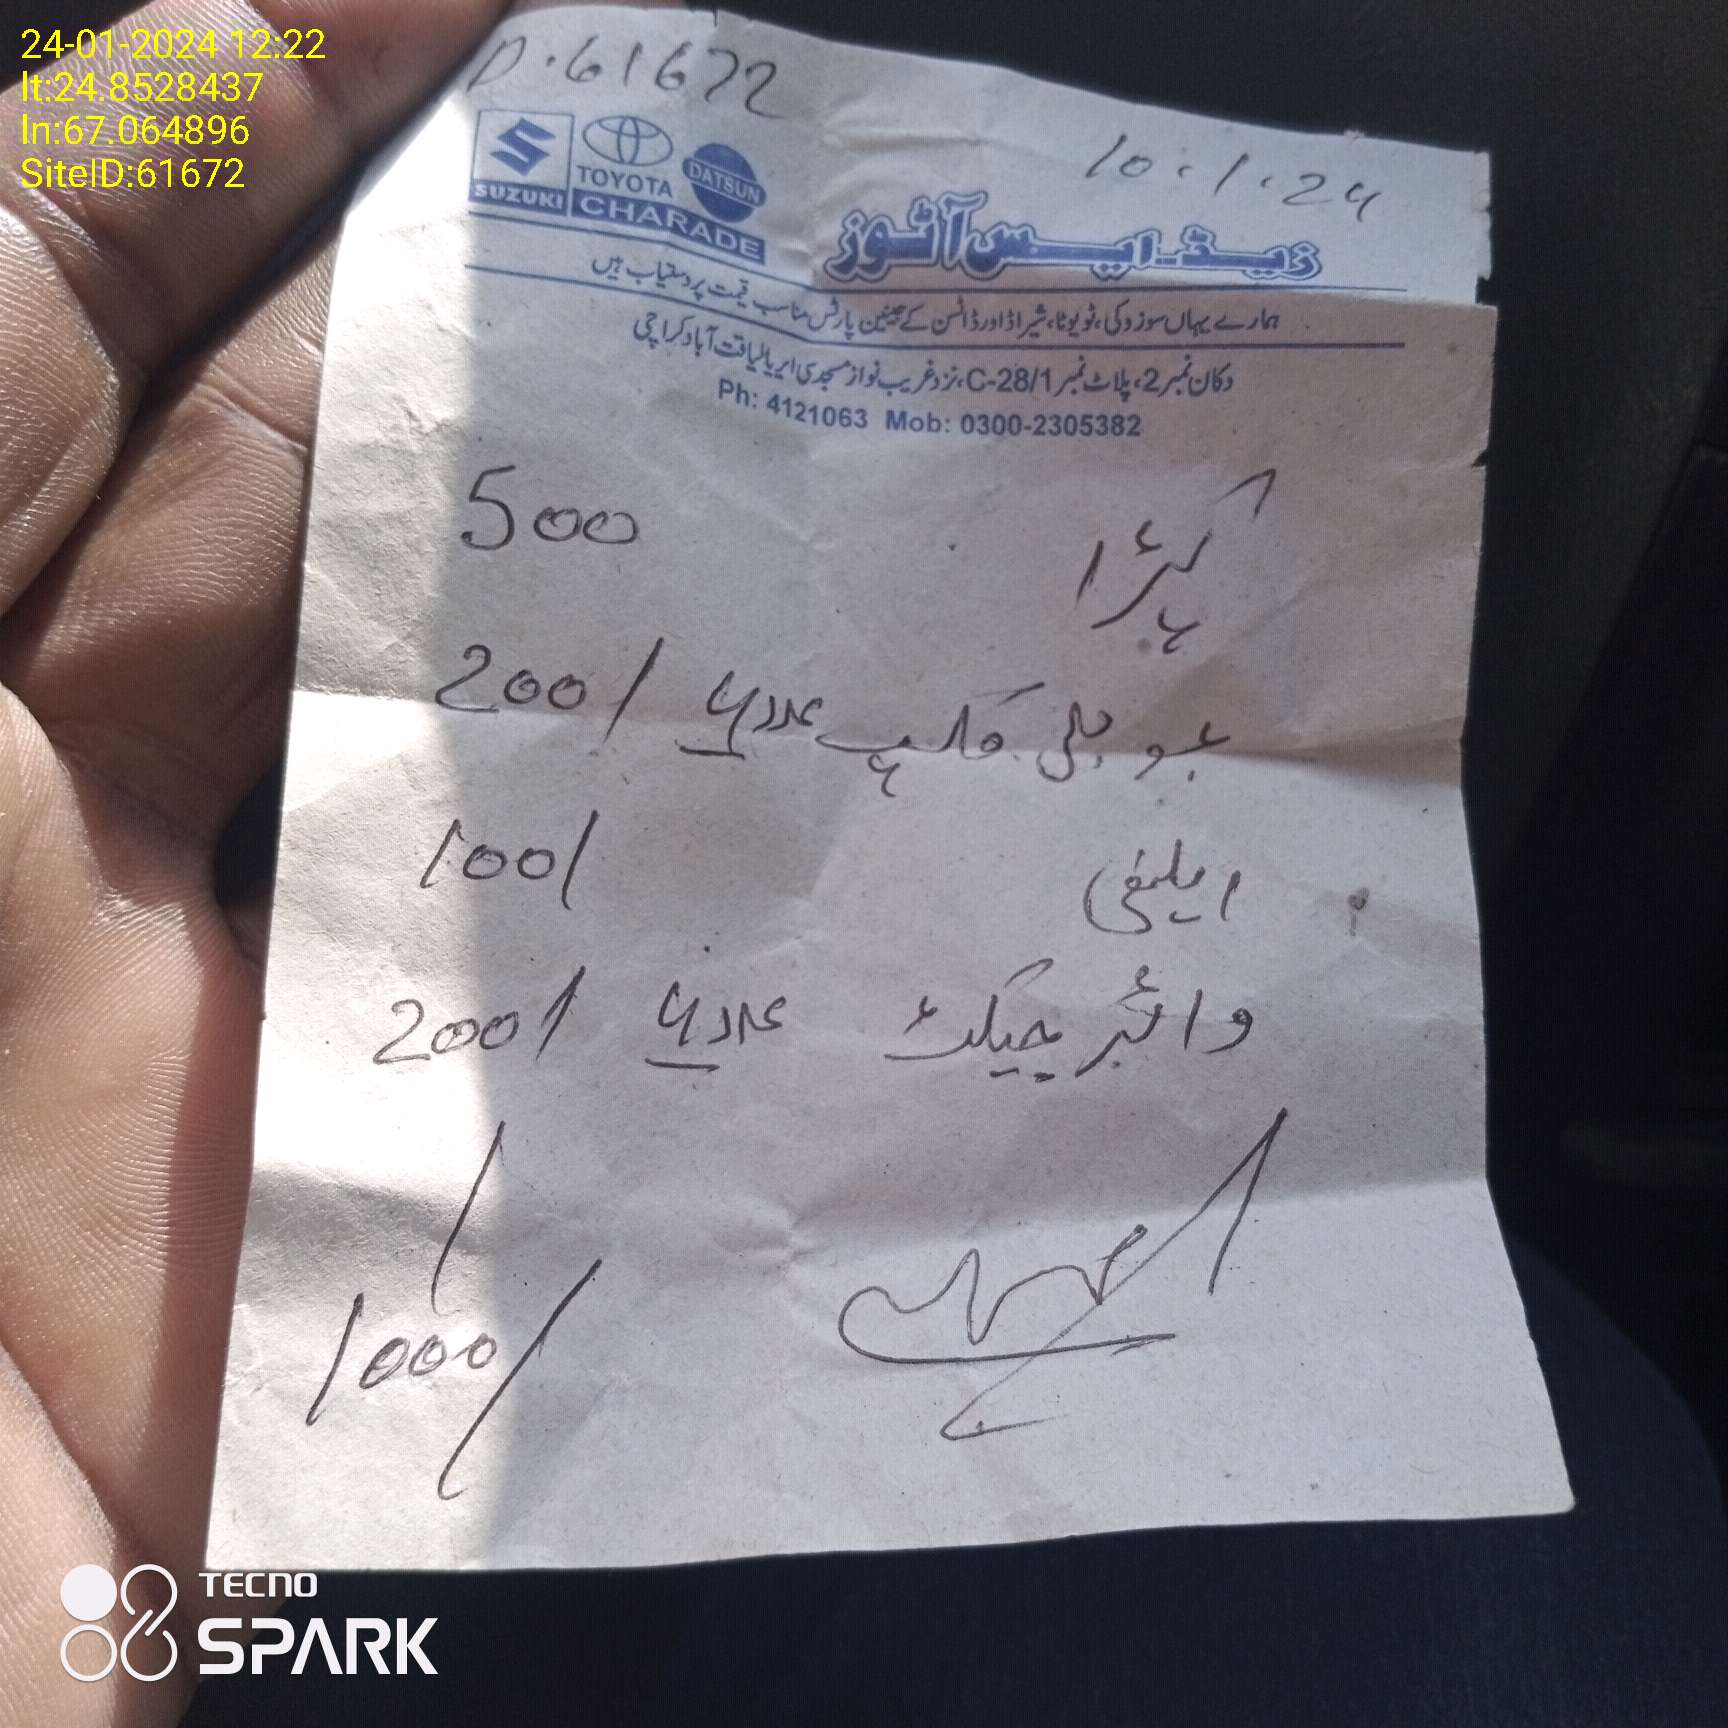 24-01-2024 12:22
lt:24.8528437
ln:67.064896
SiteID:61672
D.61672
10.1.24
SUZUKI
TOYOTA
DATSUN
CHARADE
زیڈ۔ایس آٹوز
ہمارے یہاں سوزوکی، ٹویوٹا، شیراڈ اور ڈاٹسن کے جینین پارٹس مناسب قیمت پر دستیاب ہیں
دکان نمبر 2، پلاٹ نمبر C-28/1، نزد غریب نواز مسجد سی ایریا لیاقت آباد کراچی
Ph: 4121063 Mob: 0300-2305382
کپڑا 500
عدد 4 200/
ایلفی 100/
وائبر جیکٹ عدد 4 200/
1000/
TECNO
SPARK